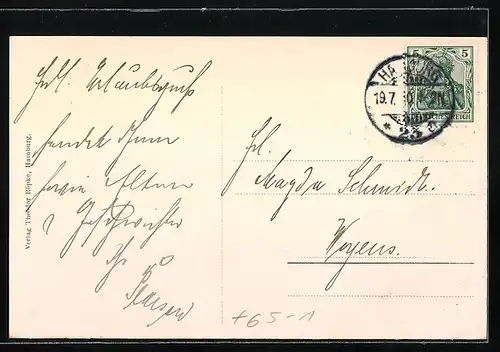 Frdl. Urlaubsgruß
sendet Ihnen
sowie Eltern
u Geschwister
Ihr
Verlag Theodor Röpke, Hamburg.
5 5
HAMBURG
19.7.10
* 23
DEUTSCHES REICH
Frl.
Magda Schmidt.
Woyens.
+65-1